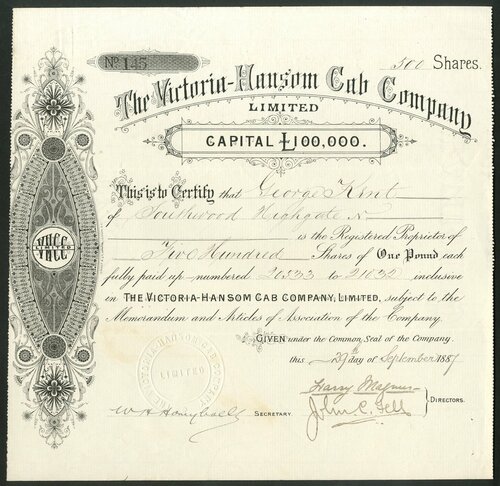 No. 145
500 Shares.
The Victoria-Hansom Cab Company
LIMITED
CAPITAL £100,000.
This is to Certify that George Kent
of Southwood Highgate N
is the Registered Proprietor of
Five Hundred Shares of One Pound each
fully paid up numbered 20533 to 21032 inclusive
in THE VICTORIA-HANSOM CAB COMPANY, LIMITED, subject to the
Memorandum and Articles of Association of the Company.
GIVEN under the Common Seal of the Company
this 29th day of September 1887
VHCC
LIMITED
VHCC
THE VICTORIA-HANSOM CAB COMPANY
LIMITED
Harry Magnus
John C. Fell
DIRECTORS.
W H Honeyball
SECRETARY.